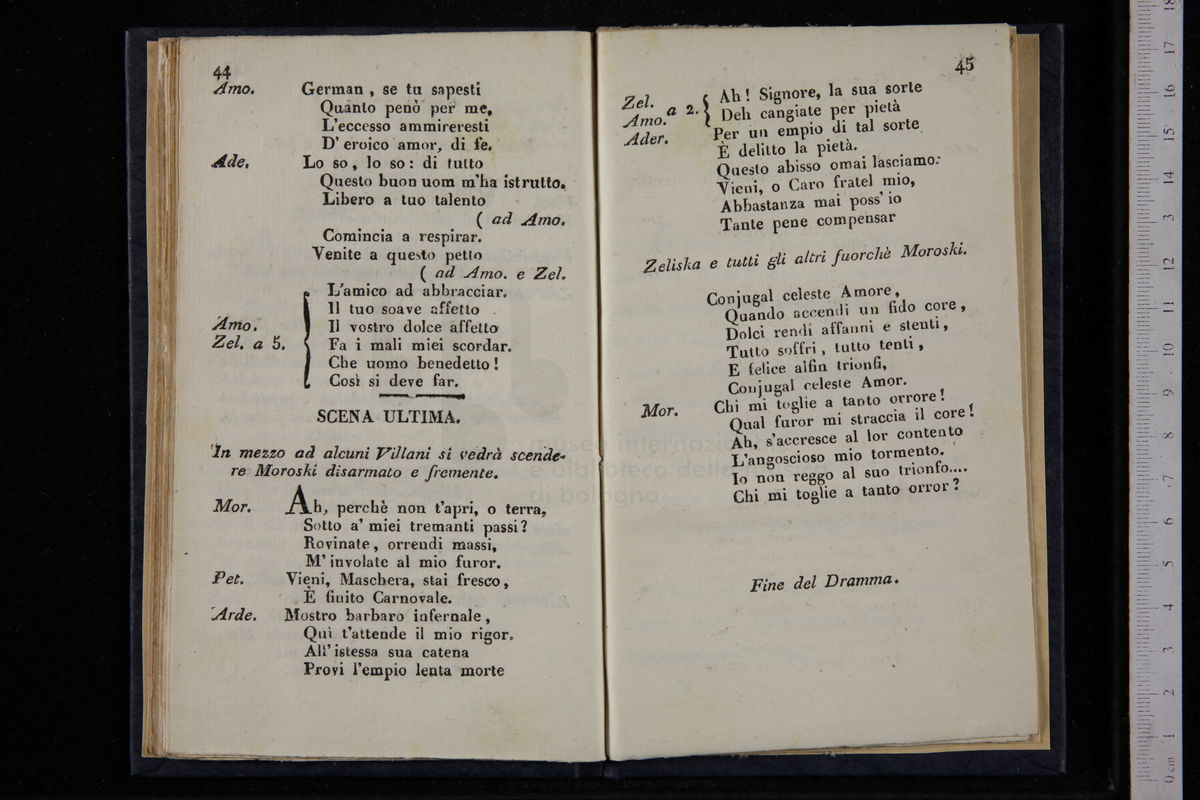 44
Amo. German , se tu sapesti
Quanto penò per me,
L'eccesso ammireresti
D' eroico amor, di fe.
Ade. Lo so , lo so : di tutto
Questo buon uom m'ha istrutto.
Libero a tuo talento
( ad Amo.
Comincia a respirar.
Venite a questo petto
( ad Amo. e Zel.
L'amico ad abbracciar.
Il tuo soave affetto
Amo. Il vostro dolce affetto
Zel. a 5. Fa i mali miei scordar.
Che uomo benedetto !
Così si deve far.
SCENA ULTIMA.
In mezzo ad alcuni Villani si vedrà scende-
re Moroski disarmato e fremente.
Mor. Ah, perchè non t'apri, o terra,
Sotto a' miei tremanti passi ?
Rovinate , orrendi massi,
M' involate al mio furor.
Pet. Vieni, Maschera, stai fresco ,
È finito Carnovale.
Arde. Mostro barbaro infernale ,
Quì t'attende il mio rigor.
All' istessa sua catena
Provi l'empio lenta morte
45
Zel. Ah ! Signore, la sua sorte
Amo. a 2. Deh cangiate per pietà
Ader. Per un empio di tal sorte
È delitto la pietà.
Questo abisso omai lasciamo:
Vieni, o Caro fratel mio,
Abbastanza mai poss' io
Tante pene compensar
Zeliska e tutti gli altri fuorchè Moroski.
Conjugal celeste Amore ,
Quando accendi un fido core ,
Dolci rendi affanni e stenti ,
Tutto soffri , tutto tenti ,
E felice alfin trionfi,
Conjugal celeste Amor.
Mor. Chi mi toglie a tanto orrore !
Qual furor mi straccia il core !
Ah, s'accresce al lor contento
L'angoscioso mio tormento.
Io non reggo al suo trionfo....
Chi mi toglie a tanto orror ?
Fine del Dramma.
museo internazionale
e biblioteca della musica
di bologna
0 cm 1 2 3 4 5 6 7 8 9 10 11 12 13 14 15 16 17 18